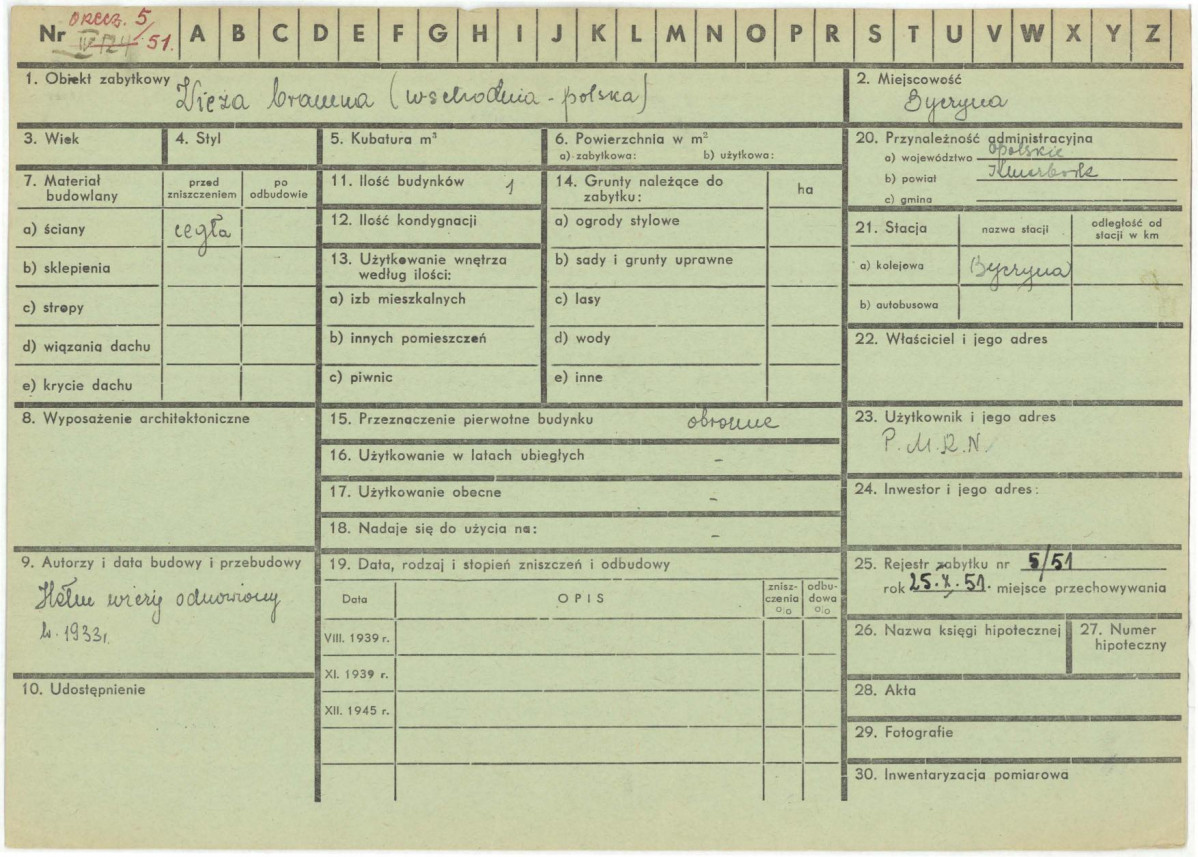 Nr orzecz. 5/51. IV-124 A B C D E F G H I J K L M N O P R S T U V W X Y Z
1. Obiekt zabytkowy Wieża bramna (wschodnia - polska)
2. Miejscowość
Byczyna
3. Wiek
4. Styl
5. Kubatura m³
6. Powierzchnia w m²
a) zabytkowa: b) użytkowa:
7. Materiał budowlany
przed zniszczeniem
po odbudowie
a) ściany cegła
b) sklepienia
c) stropy
d) wiązania dachu
e) krycie dachu
8. Wyposażenie architektoniczne
9. Autorzy i data budowy i przebudowy
Hełm wieży odnowiony
w. 1933r.
10. Udostępnienie
11. Ilość budynków 1
12. Ilość kondygnacji
13. Użytkowanie wnętrza
według ilości:
a) izb mieszkalnych
b) innych pomieszczeń
c) piwnic
14. Grunty należące do
zabytku:
ha
a) ogrody stylowe
b) sady i grunty uprawne
c) lasy
d) wody
e) inne
15. Przeznaczenie pierwotne budynku obronne
16. Użytkowanie w latach ubiegłych -
17. Użytkowanie obecne -
18. Nadaje się do użycia na: -
19. Data, rodzaj i stopień zniszczeń i odbudowy
Data
OPIS
znisz-
czenia
%
odbu-
dowa
%
VIII. 1939 r.
XI. 1939 r.
XII. 1945 r.
20. Przynależność administracyjna
a) województwo opolskie
b) powiat Kluczbork
c) gmina
21. Stacja
nazwa stacji
odległość od
stacji w km
a) kolejowa Byczyna
b) autobusowa
22. Właściciel i jego adres
23. Użytkownik i jego adres
P.M.R.N.
24. Inwestor i jego adres:
25. Rejestr zabytku nr 5/51
rok 25.X.51. miejsce przechowywania
26. Nazwa księgi hipotecznej
27. Numer
hipoteczny
28. Akta
29. Fotografie
30. Inwentaryzacja pomiarowa